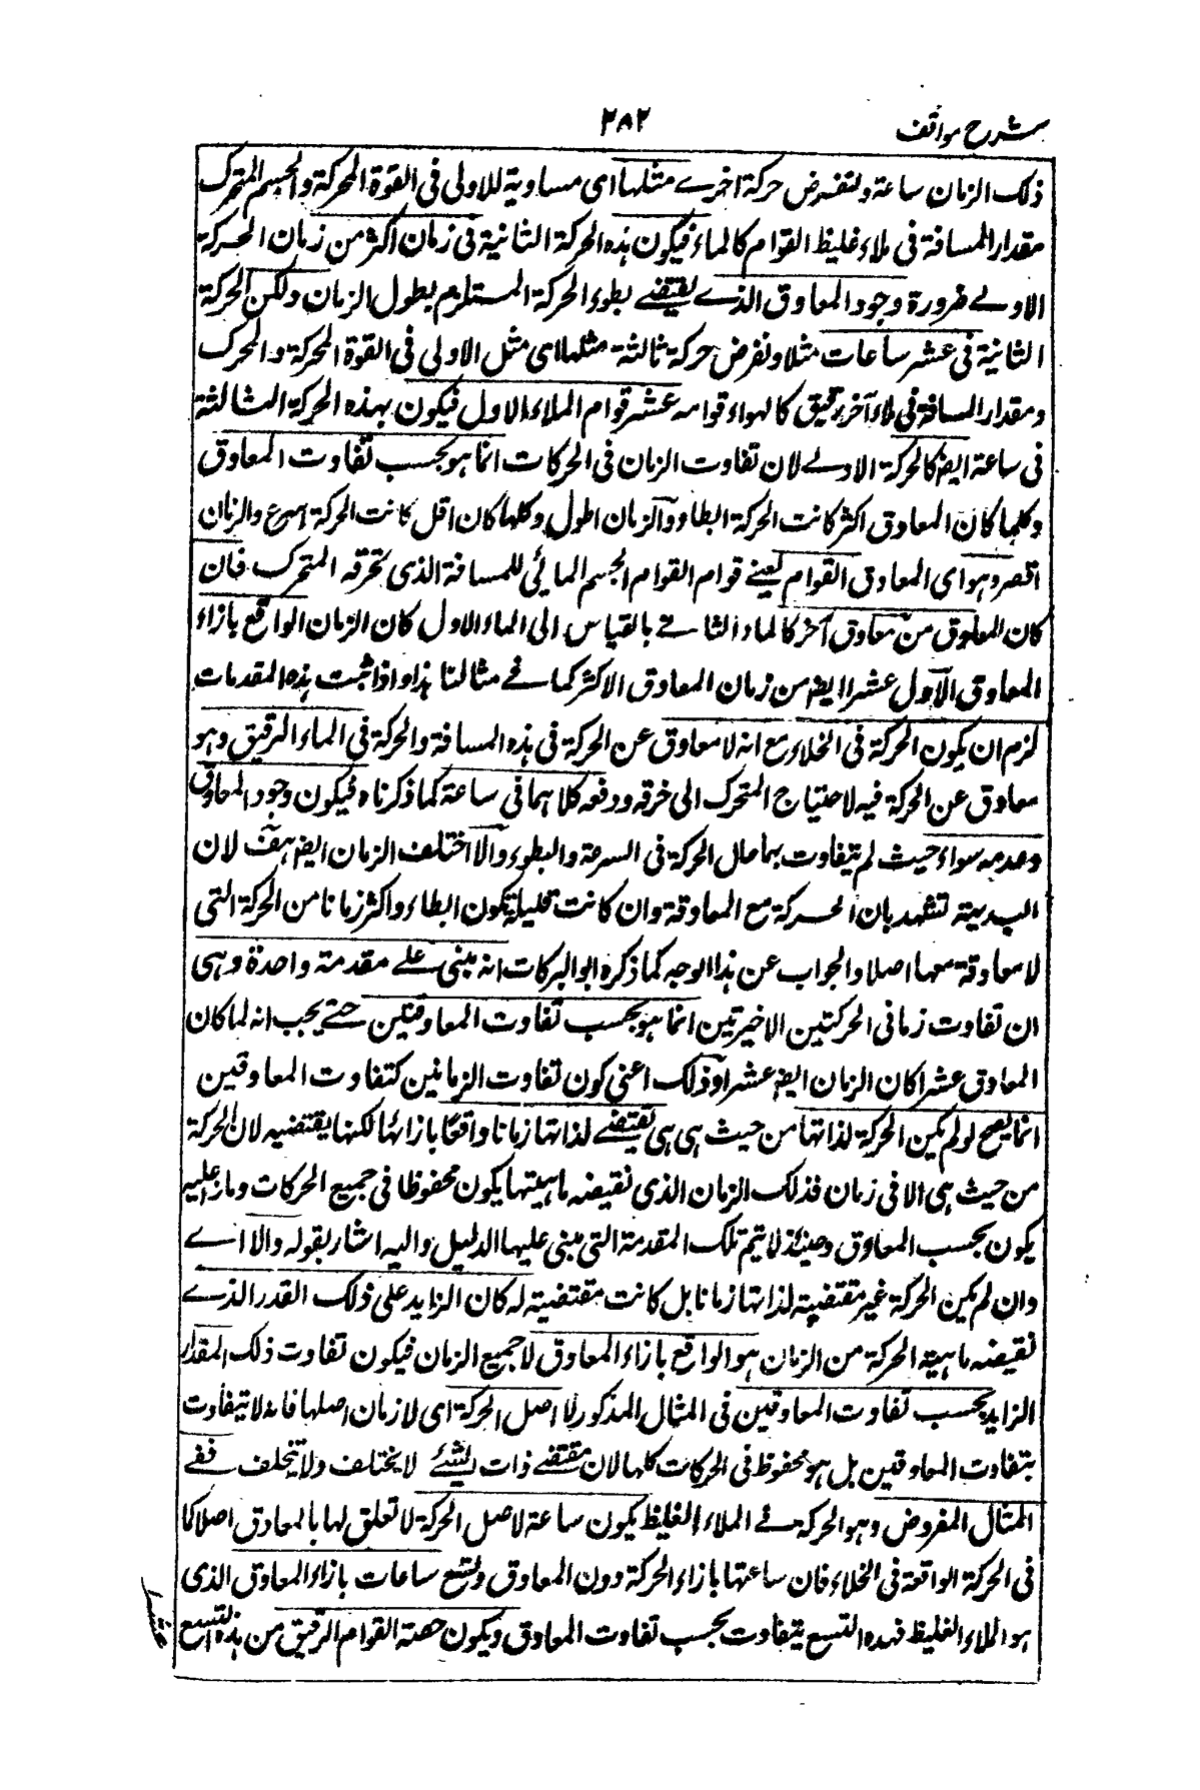 شرح مواقف
٢٨٢
ذلك الزمان ساعة ولنفرض حركة اخرے مثلها اى مساوية للاولى فى القوة المحركة والجسم المتحرك
مقدار المسافة فى ملاء غليظ القوام كالماء فيكون هذه الحركة الثانية فى زمان اكثر من زمان الحركة
الاولے ضرورة وجود المعاوق الذے يقتضے بطوء الحركة المستلزم بطول الزمان ولكن الحركة
الثانية فى عشر ساعات مثلا ونفرض حركة ثالثة مثلها اى مثل الاولى فى القوة المحركة والمحرك
ومقدار المسافة فى ملاء آخر رقيق كالهواء قوامه عشر قوام الملاء الاول فيكون بهذه الحركة الثالثة
فى ساعة ايضا كالحركة الاولے لان تفاوت الزمان فى الحركات انما هو بحسب تفاوت المعاوق
وكلما كان المعاوق اكثر كانت الحركة ابطاء والزمان اطول وكلما كان اقل كانت الحركة اسرع والزمان
اقصر وهو اى المعاوق القوام يعنے قوام القوام الجسم المالئ للمسافة الذى يخرقه المتحرك فان
كان المعاوق من معاوق آخر كالماء الثانے بالقياس الى الماء الاول كان الزمان الواقع بازاء
المعاوق الاول عشرا ايضا من زمان المعاوق الاكثر كما فے مثالنا هذا واذا ثبت هذه المقدمات
لزم ان يكون الحركة فى الخلاء مع انه لا معاوق عن الحركة فى هذه المسافة والحركة فى الماء الرقيق وهو
معاوق عن الحركة فيه لاحتياج المتحرك الى خرقه ودفعه كلاهما فى ساعة كما ذكرناه فيكون وجود المعاوق
وعدمه سواء حيث لم يتفاوت بهما حال الحركة فى السرعة والبطوء والا اختلف الزمان ايضا هف لان
البديهة تشهد بان الحركة مع المعاوقة وان كانت قليلة يكون ابطاء واكثر زمانا من الحركة التى
لا معاوقة معها اصلا والجواب عن هذا الوجه كما ذكره ابو البركات انه مبنى علے مقدمة واحدة وهى
ان تفاوت زمانى الحركتين الاخيرتين انما هو بحسب تفاوت المعاوقتين حتے يجب انه لما كان
المعاوق عشرا كان الزمان ايضا عشرا وذلك اعنى كون تفاوت الزمانين كتفاوت المعاوقين
انما يصح لو لم يكن الحركة لذاتها من حيث هى هى تقتضے لذاتها زمانا واقعا بازائها لكنها يقتضيه لان الحركة
من حيث هى الا فى زمان فذلك الزمان الذى تقيضه ماهيتها يكون محفوظا فى جميع الحركات وما زاد عليه
يكون بحسب المعاوق وحينئذ لا يتم تلك المقدمة التى مبنى عليها الدليل واليه اشار بقوله والا اے
وان لم يكن الحركة غير مقتضية لذاتها زمانا بل كانت مقتضية له كان الزايد على ذلك القدر الذے
تقيضه ماهية الحركة من الزمان هو الواقع بازاء المعاوق لا جميع الزمان فيكون تفاوت ذلك المقدار
الزايد بحسب تفاوت المعاوقين فى المثال المذكور لا اصل الحركة اى لا زمان اصلها فانه لا يتفاوت
بتفاوت المعاوقين بل هو محفوظ فى الحركات كلها لان مقتضے ذات الشئ لا يختلف ولا يتخلف ففے
المثال المفروض وهو الحركة فے الملاء الغليظ يكون ساعة لاصل الحركة لا تعلق لها بالمعاوق اصلا كما
فى الحركة الواقعة فى الخلاء فان ساعتها بازاء الحركة دون المعاوق وتسع ساعات بازاء المعاوق الذى
هو الملاء الغليظ فهذه التسع يتفاوت بحسب تفاوت المعاوق ويكون حصة القوام الرقيق من هذه التسع